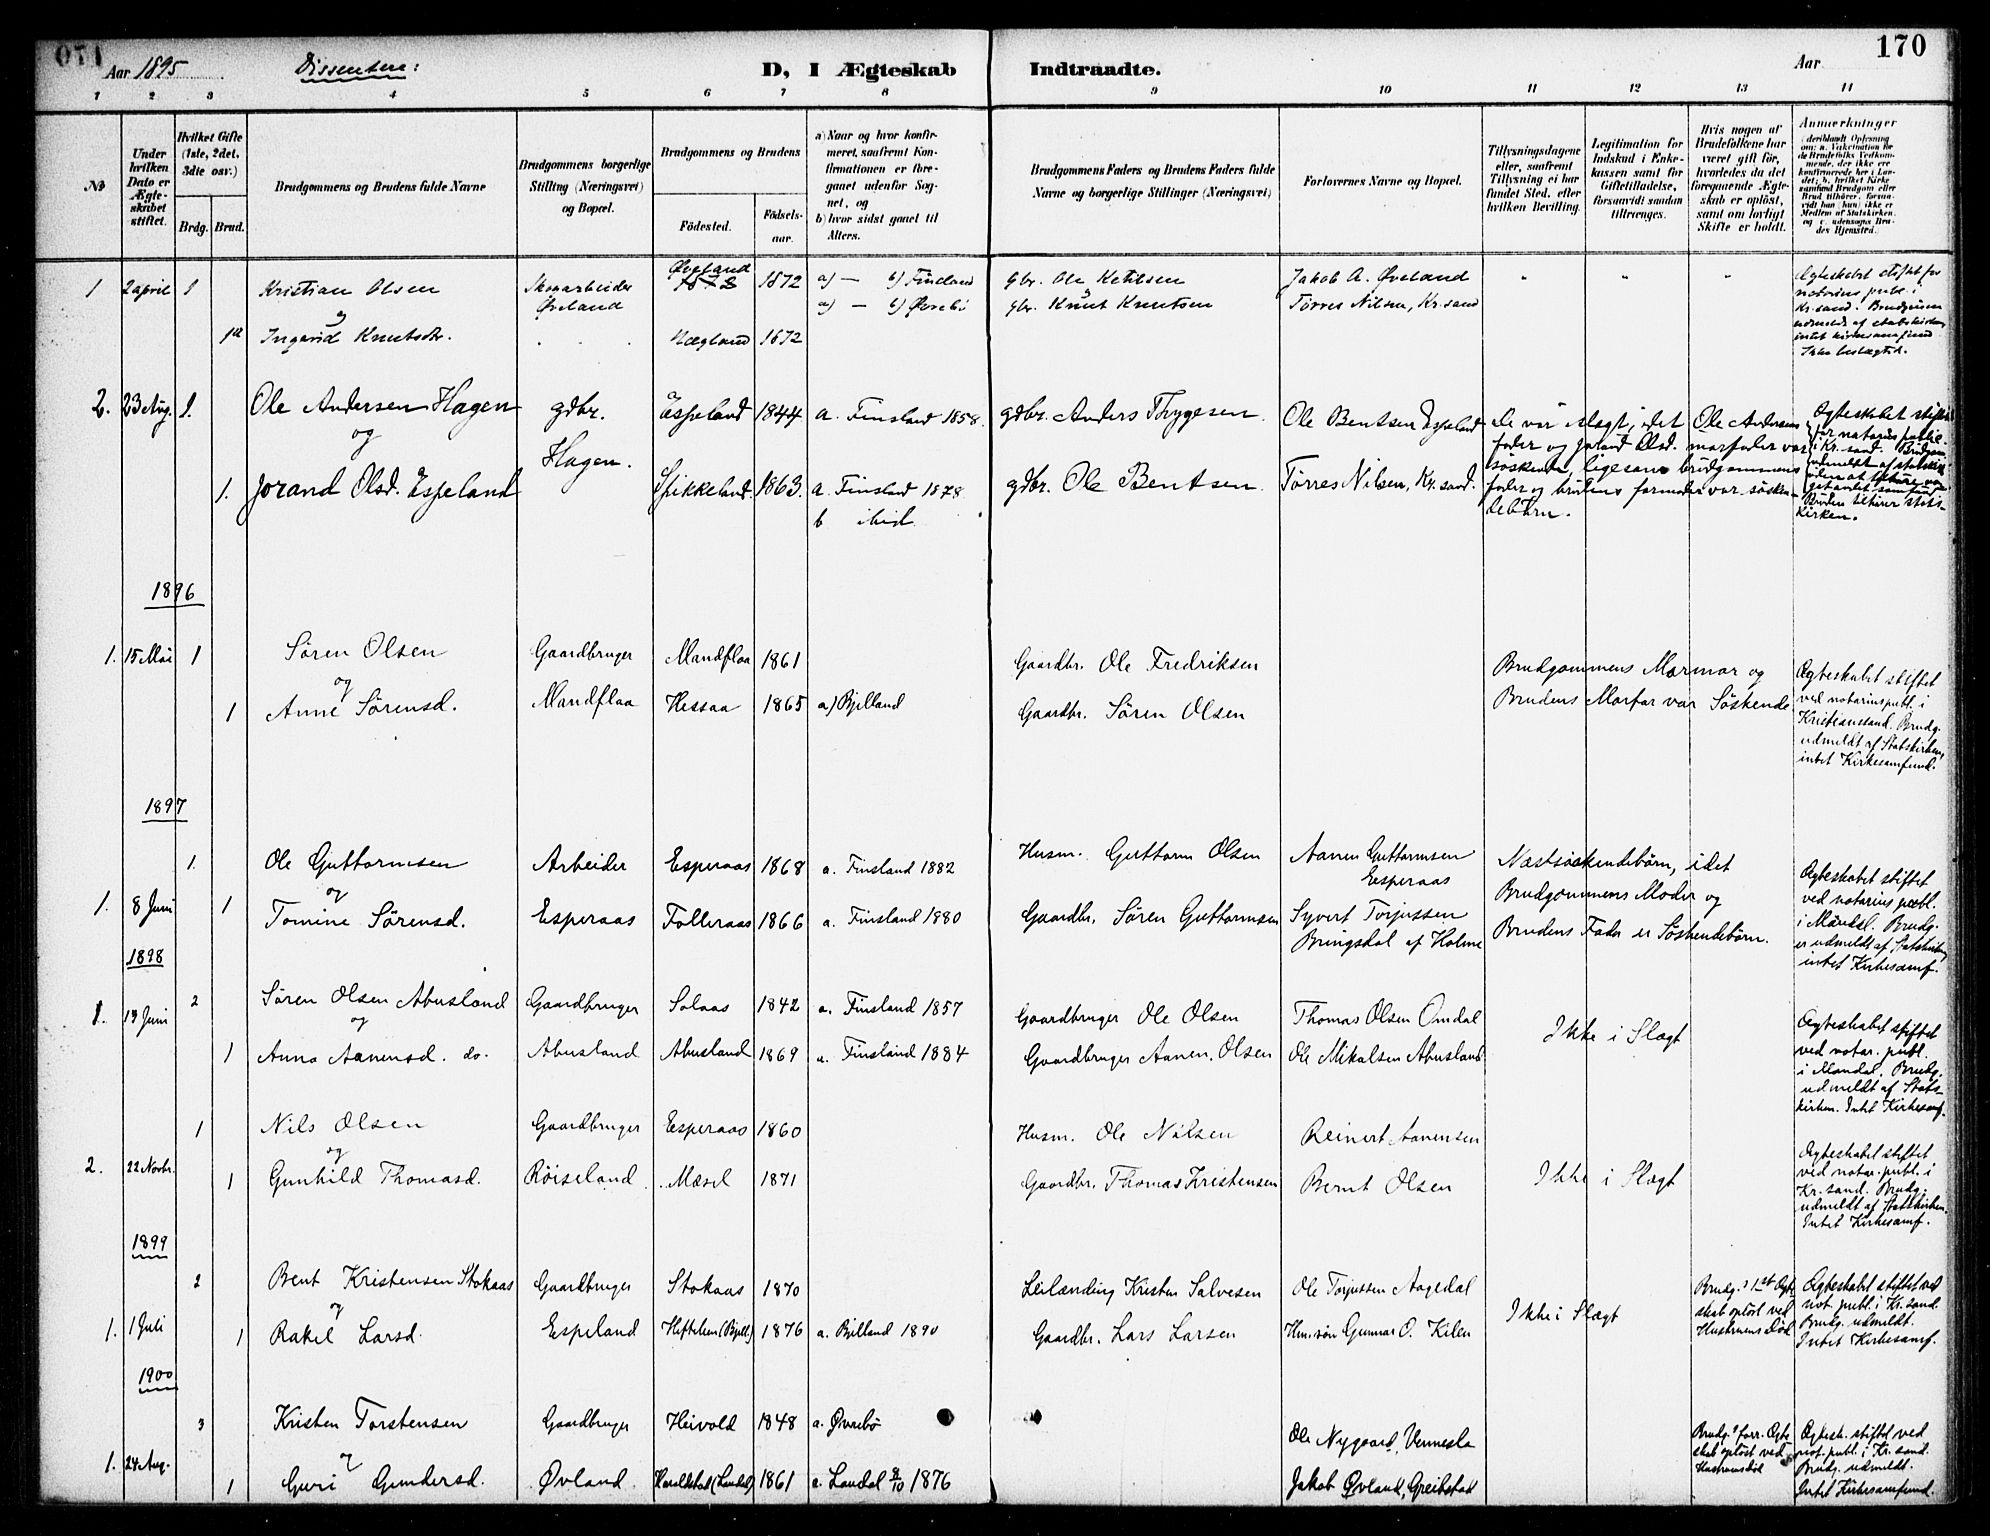 170
Aar 1895
Dissentere:
D, I Ægteskab
Indtraadte.
Aar
1 2 3 4 5 6 7 8 9 10 11 12 13 14
No
Under hvilken Dato er Ægteskabet stiftet.
Hvilket Gifte (1ste, 2det, 3die osv.)
Brdg. Brud.
Brudgommens og Brudens fulde Navne
Brudgommens borgerlige Stilling (Næringsvei) og Bopæl.
Brudgommens og Brudens
Födested.
Födselsaar.
a) Naar og hvor konfirmeret, saafremt Konfirmationen er foregaaet udenfor Sognet, og
b) hvor sidst gaaet til Alters.
Brudgommens Faders og Brudens Faders fulde Navne og borgerlige Stillinger (Næringsvei)
Forlovernes Navne og Bopæl.
Tillysningsdagene eller, saafremt Tillysning ei har fundet Sted, efter hvilken Bevilling.
Legitimation for Indskud i Enkekassen samt for Giftetilladelse, forsaavidt saadan tiltrænges.
Hvis nogen af Brudefolkene har været gift för, hvorledes da det foregaaende Ægteskab er oplöst, samt om lovligt Skifte er holdt.
Anmærkninger
1 2 april 1 Kristian Olsen Skogarbeider Øveland 1872 a) — b) Finsland gbr. Ole Ketilsen Jakob A. Øveland
og Øveland a) — b) Øvrebö gbr. Knut Knutsen Tørres Nilsen, Kr.sand
1 Ingerid Knutsdr. Hægland 1872
Ægteskabet stiftet for
notarius publ. i
Kr.sand. Brudgommen
udmeldt af statskirken
intet kirkesamfund
Ikke beslægted.
2. 23 Aug. 1. Ole Andersen Hagen gdbr. Espeland 1844 a. Finsland 1858. gdbr. Anders Thygesen Ole Bentsen Espeland
og Hagen.
1. Jorand Olsd. Espeland Spikkeland 1863. a. Finsland 1878 gdbr. Ole Bentsen Tørres Nilsen, Kr.sand.
b ibid
De var i slægt, idet Ole Andersens
fader og Jorand Olsd. morfader var
søskende, ligesom brudgommens
fader og brudens farmoder var søsken-
debörn.
Ægteskabet stiftet
for notarius public.
i Kr.sand. Brudgom
udmeldt af statskir-
Bruden tilhører stats-
kirken.
1896
1. 15 Mai 1 Sören Olsen Gaardbruger Mandflaa 1861 Gaardbr. Ole Fredriksen
og
1 Anne Sörensd. Mandflaa Hessaa 1865 a) Bjelland Gaardbr. Sören Olsen
Brudgommens Mormor og
Brudens Morfar var Söskende
Ægteskabet stiftet
ved notarius publ. i
Kristiansand. Brudg.
udmeldt af Statskirken,
intet Kirkesamfund.
1897
1. Ole Guttormsen Arbeider Esperaas 1868 a. Finsland 1882 Husm. Guttorm Olsen Aanen Guttormsen
og Esperaas
1. 8 Juni 1 Tomine Sörensd. Esperaas Folleraas 1866 a. Finsland 1880 Gaardbr. Sören Guttormsen Syvert Torjussen
Bringsdal af Holme
Næstsöskendebörn, idet
Brudgommens Moder og
Brudens Fader er Söskendebörn.
Ægteskabet stiftet
ved notarius publ.
i Mandal. Brudg.
er udmeldt af Statskirken
intet Kirkesamf.
1898
2 Sören Olsen Abusland Gaardbruger Solaas 1842 a. Finsland 1857 Gaardbruger Ole Olsen Thomas Olsen Omdal
1. 13 Juni og Ikke i Slægt
1 Anna Aanensd. do. Abusland Abusland 1869 a. Finsland 1884 Gaardbruger Aanen Olsen Ole Mikalsen Abusland
Ægteskabet stiftet
ved notar. publ.
i Mandal. Brudg.
udmeldt af Stats-
kirken. Intet Kirkesamf.
1 Nils Olsen Gaardbruger Esperaas 1860 Husm. Ole Nilsen Reinert Aanensen
og
2. 22 Novbr. 1 Gunhild Thomasd. Röiseland Mæsel 1871 Gaardbr. Thomas Kristensen Bernt Olsen Ikke i Slægt
Ægteskabet stiftet
ved notar. publ. i
Kr.sand. Brudg.
udmeldt af Statskirken.
Intet Kirkesamf.
1899
2 Bent Kristensen Stokaas Gaardbruger Stokaas 1870 Leilænding Kristen Salvesen Ole Torjussen Aagedal
1. 1 Juli og Ikke i Slægt
1 Rakel Larsd. Espeland Heftelien (Bjell.) 1876 a. Bjelland 1890 Gaardbr. Lars Larsen Hm.sön Gunnar O. Kilen
Brudg.s 1st Ægte
skab oplöst ved
Hustruens Död
Ægteskabet stiftet ved
not. publ. i Kr.sand.
Brudg. udmeldt.
Intet Kirkesamf.
1900
3 Kristen Torstensen Gaardbruger Heivold 1848 a. Øvrebö Ole Nygaard, Vennesla
1. 24 Aug. og
1 Guri Gundersd. Øvland Haraldstad (Laudal) 1861 a. Laudal 8/10 1876 Jakob Øvland, Greibstad
Brudg.s forr. Ægte
skab oplöst ved
Hustruens Död
Ægtesk. stiftet ved
not. publ. i Kr.sand.
Brudg. udmeldt.
Intet Kirkesamfund.